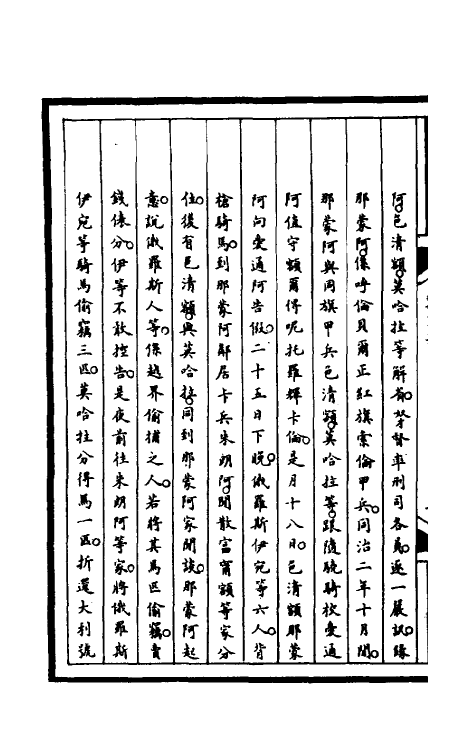 阿色清額莫哈拉等解省○努才督率刑司各員○逐一嚴訊○緣
那蒙阿係呼倫貝爾正紅旗索倫甲兵○同治二年十月間○
那蒙阿與同旗甲兵色清額莫哈拉等跟隨驍騎校愛通
阿值守額爾得呢托羅輝卡倫○是月十八日○色清額那蒙
阿向愛通阿告假○二十五日下晚○俄羅斯伊宛等六人○背
槍騎馬○到那蒙阿鄰居卡兵朱朗阿○閒散富甯額等家分
住○後有色清額○與莫哈拉○同到那蒙阿家閒談○那蒙阿起
意○說俄羅斯人等○係越界偷捕之人○若將其馬匹偷竊○賣
錢俵分○伊等不敢控告○是夜前往朱朗阿等家○將俄羅斯
伊宛等騎馬偷竊三匹○莫哈拉分得馬一匹○折還大利號